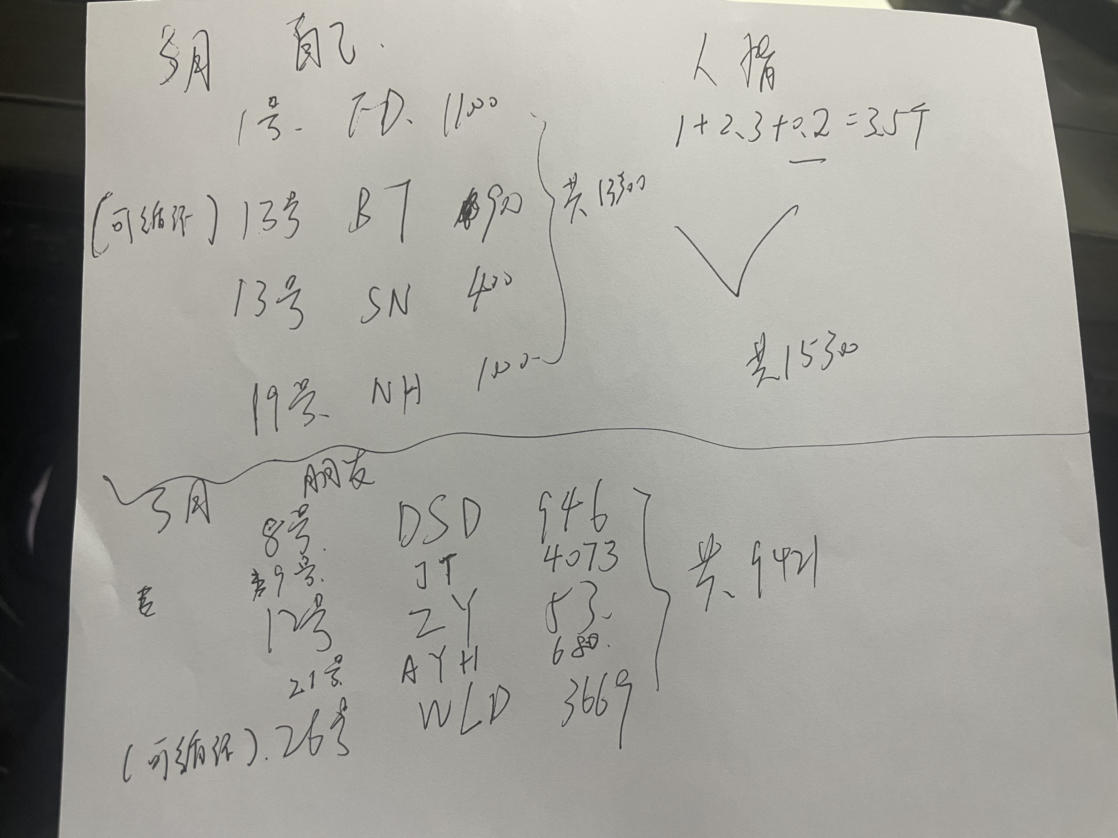 3月 自己.
1号. FD. 1100
(可循环) 13号 BT 900
13号 SN 400
19号. NH 1000
共13300
人情
1+2.3+0.2=3.5千
共15300
3月 朋友
8号. DSD 946
9号. JT 4073
12号 ZY 53.
21号 AYH 680.
(可循环). 26号 WLD 3669
共. 9421